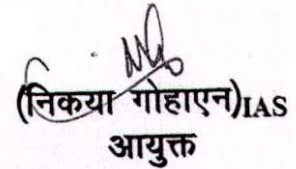 (निकया गोहाएन)IAS
आयुक्त